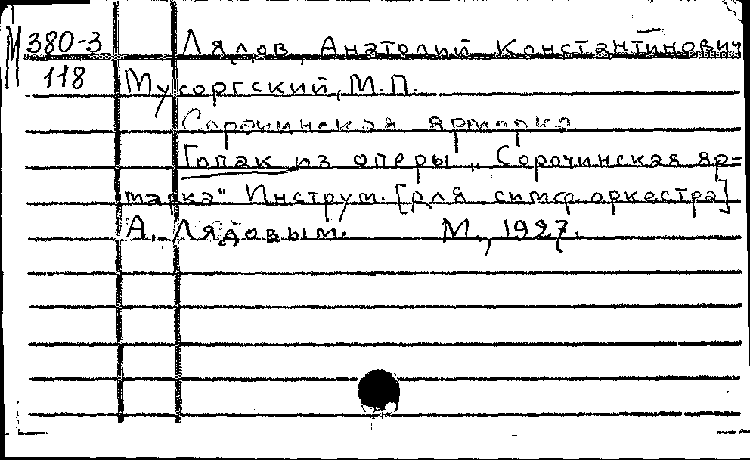 М 380-3 Лядов, Анатолий Константинович
118 Мусоргский, М.П.
Сорочинская ярмарка
Гопак из оперы „Сорочинская яр=
марка" Инструм. [для симф. оркестра]
А. Лядовым. М., 1927.